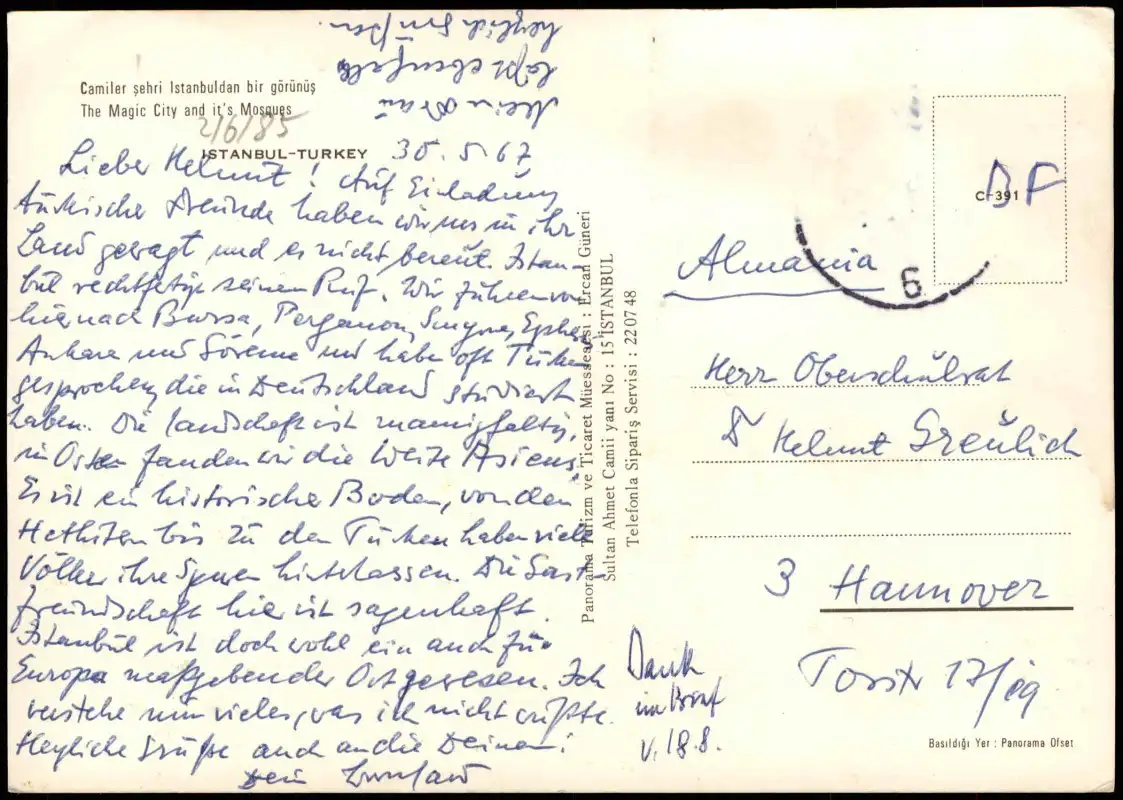 Camiler şehri Istanbuldan bir görünüş
The Magic City and it's Mosques
2/6/85
ISTANBUL-TURKEY 30.5.67
Lieber Helmut! Auf Einladung
türkischer Freunde haben wir uns in ihr
Land gewagt und es nicht bereut. Istan-
bul rechtfertigt seinen Ruf. Wir fuhren von
hier nach Bursa, Pergamon, Smyrna, Ephesus,
Ankara und Göreme und haben oft Türken
gesprochen, die in Deutschland studiert
haben. Die Landschaft ist mannigfaltig,
im Osten fanden wir die Weite Asiens.
Es ist ein historischer Boden, von den
Hethitern bis zu den Türken haben viele
Völker ihre Spuren hinterlassen. Die Gast-
freundschaft hier ist sagenhaft.
Istanbul ist doch wohl ein auch für
Europa maßgebender Ort gewesen. Ich
verstehe nun vieles, was ich nicht wußte.
Herzliche Grüße auch an die Deinen!
Dein
Meine Frau
läßt ebenfalls
herzlich grüßen.
Panorama Turizm ve Ticaret Müessesesi : Ercan Güneri
Sultan Ahmet Camii yanı No : 15 İSTANBUL
Telefonla Sipariş Servisi : 22 07 48
C-391
DF
6
Almania
Herr Oberschulrat
Dr Helmut Greulich
3 Hannover
Torstr 17/19
Dank
im Brief
v. 18.8.
Basıldığı Yer : Panorama Ofset